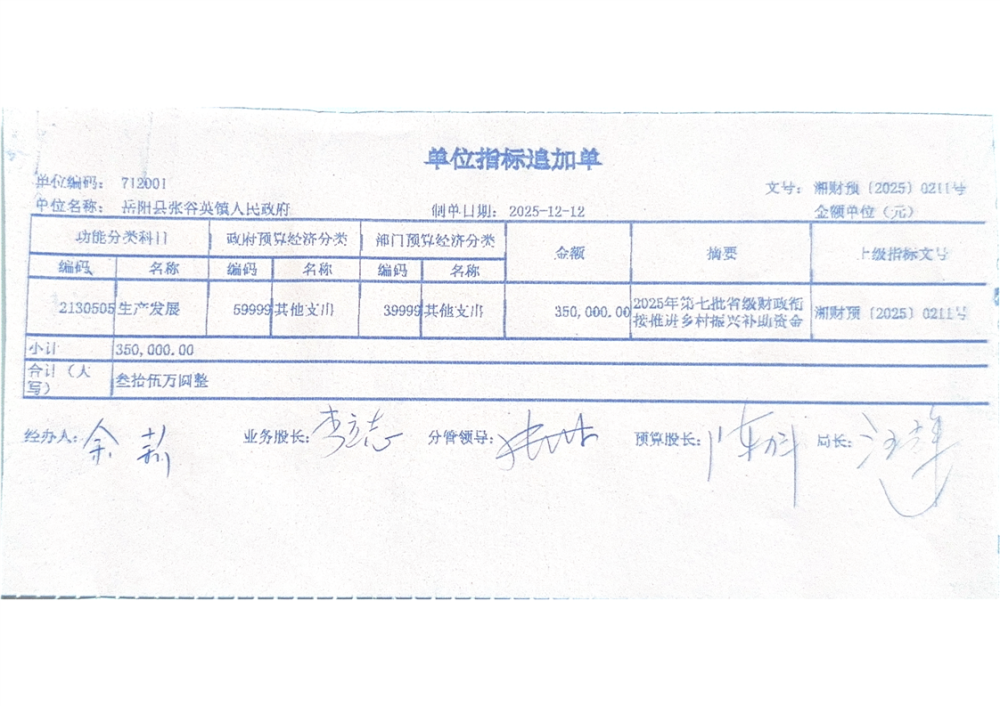 单位指标追加单
单位编码： 712001 文号： 湘财预〔2025〕0211号
单位名称： 岳阳县张谷英镇人民政府 制单日期： 2025-12-12 金额单位（元）
功能分类科目 政府预算经济分类 部门预算经济分类 金额 摘要 上级指标文号
编码 名称 编码 名称 编码 名称
2130505 生产发展 59999 其他支出 39999 其他支出 350,000.00 2025年第七批省级财政衔 湘财预〔2025〕0211号
接推进乡村振兴补助资金
小计 350,000.00
合计（大 叁拾伍万圆整
写）
经办人： 业务股长： 李立志 分管领导： 预算股长： 局长：